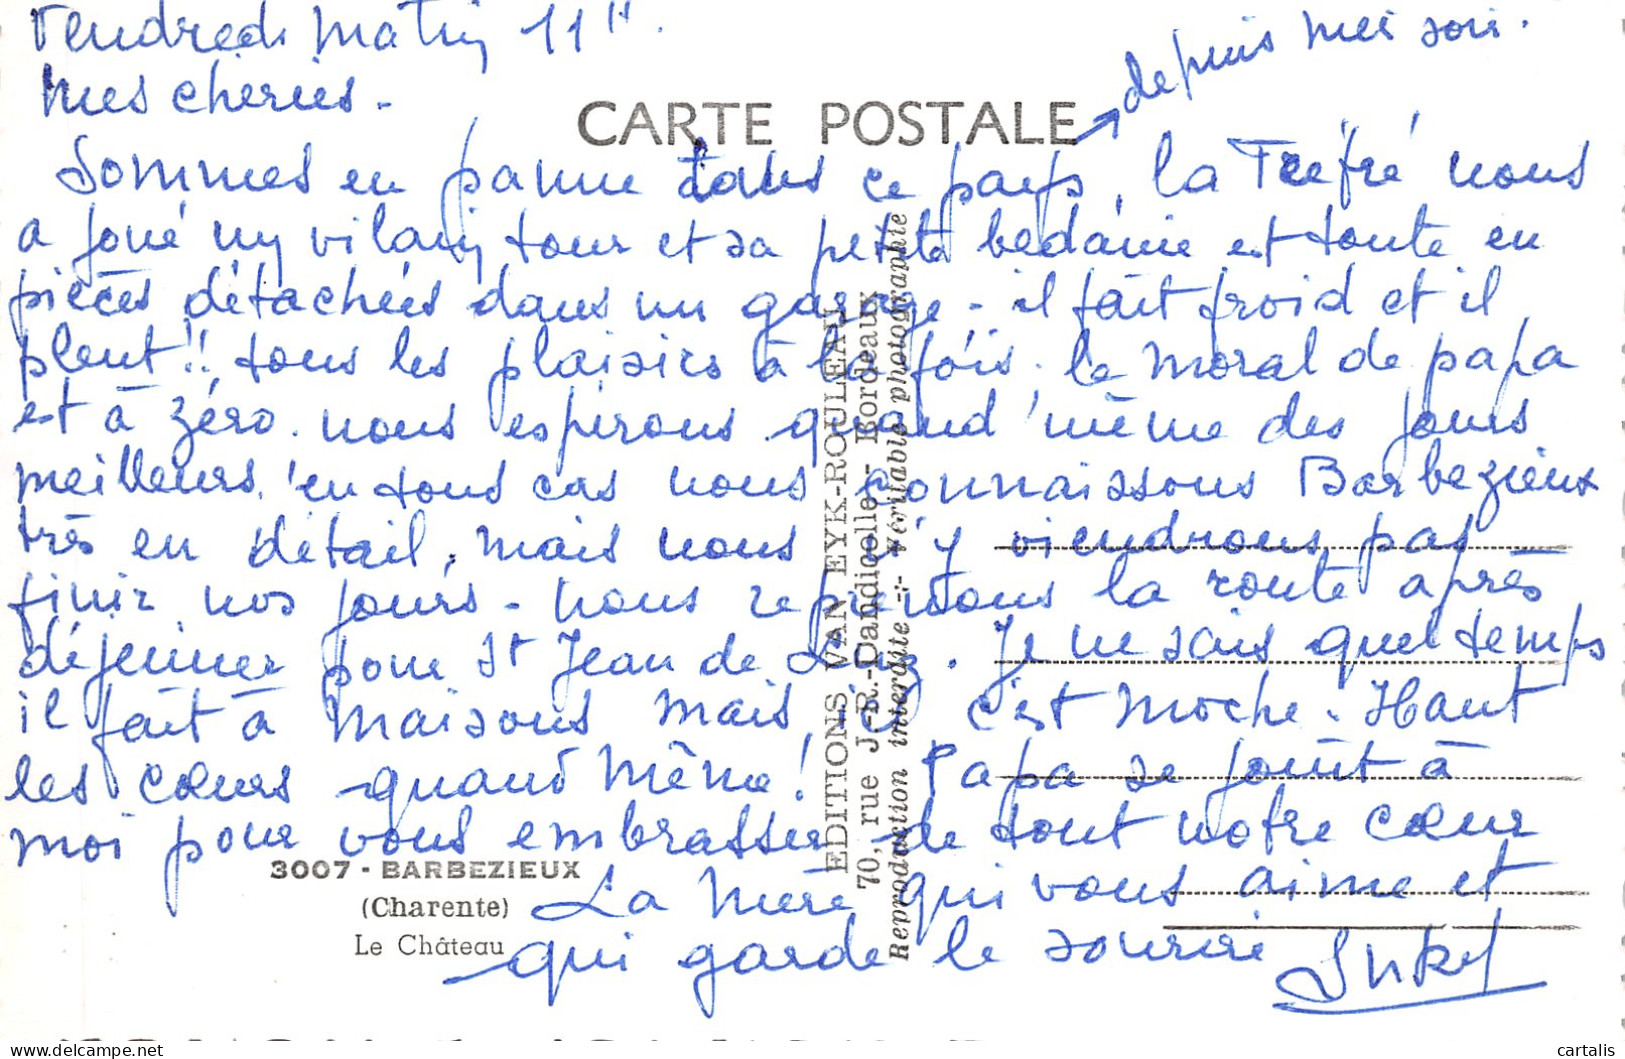 Vendredi matin 11 H.
Mes chéries -
depuis mer soir.
CARTE POSTALE
Sommes en panne dans ce pays, la Tréfré nous
a joué un vilain tour et sa petite bédaine est toute en
pièces détachées dans un garage - il fait froid et il
pleut!! tous les plaisirs à la fois. le moral de papa
est à zéro. nous espérons quand même des jours
meilleurs, en tous cas nous connaissons Barbezieux
très en détail, mais nous n'y viendrons pas
finir nos jours - nous reprenons la route après
déjeuner pour St Jean de Luz. Je ne sais quel temps
il fait à Maisons mais ici c'est moche. Haut
les cœurs quand même! Papa se joint à
moi pour vous embrasser de tout notre cœur
La mère qui vous aime et
qui garde le sourire
3007 - BARBEZIEUX
(Charente)
Le Château
EDITIONS VAN EYK-ROULEAU
70, rue J.-R.-Dandicolle - Bordeaux
Reproduction interdite -:- Véritable photographie
cartalis